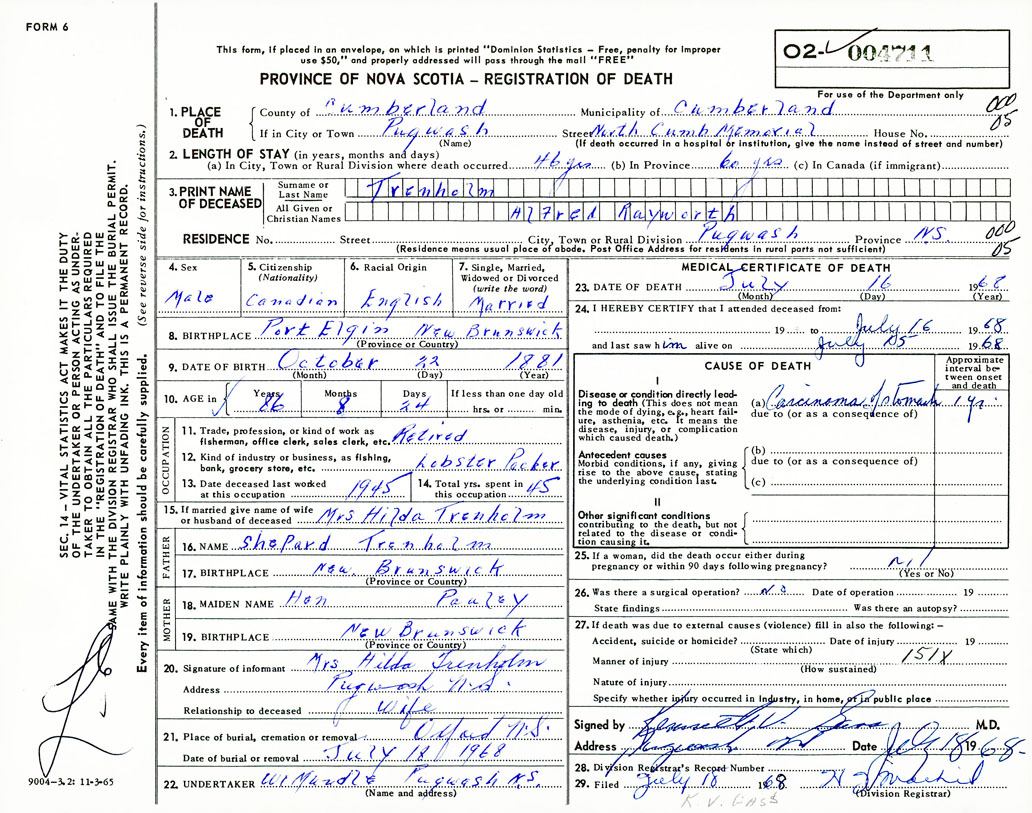 FORM 6
This form, if placed in an envelope, on which is printed "Dominion Statistics – Free, penalty for improper
use $50," and properly addressed will pass through the mail "FREE"
PROVINCE OF NOVA SCOTIA – REGISTRATION OF DEATH
02- 004711
For use of the Department only
000
05
1. PLACE OF DEATH County of Cumberland Municipality of Cumberland
If in City or Town Pugwash Street North Cumb Memorial House No.
(Name) (If death occurred in a hospital or institution, give the name instead of street and number)
2. LENGTH OF STAY (in years, months and days)
(a) In City, Town or Rural Division where death occurred 46 yrs (b) In Province 60 yrs (c) In Canada (if immigrant)
3. PRINT NAME OF DECEASED
Surname or Last Name Trenholm
All Given or Christian Names Alfred Rayworth
RESIDENCE No. Street City, Town or Rural Division Pugwash Province NS.
(Residence means usual place of abode. Post Office Address for residents in rural parts not sufficient)
000
05
4. Sex Male
5. Citizenship (Nationality) Canadian
6. Racial Origin English
7. Single, Married, Widowed or Divorced (write the word) Married
8. BIRTHPLACE Port Elgin New Brunswick
(Province or Country)
9. DATE OF BIRTH October 22 1881
(Month) (Day) (Year)
10. AGE in Years 86 Months 8 Days 24 If less than one day old hrs. or min.
OCCUPATION
11. Trade, profession, or kind of work as fisherman, office clerk, sales clerk, etc. Retired
12. Kind of industry or business, as fishing, bank, grocery store, etc. Lobster Packer
13. Date deceased last worked at this occupation 1945
14. Total yrs. spent in this occupation 45
15. If married give name of wife or husband of deceased Mrs Hilda Trenholm
FATHER
16. NAME Shepard Trenholm
17. BIRTHPLACE New Brunswick
(Province or Country)
MOTHER
18. MAIDEN NAME Hen Pauley
19. BIRTHPLACE New Brunswick
(Province or Country)
20. Signature of informant Mrs Hilda Trenholm
Address Pugwash N.S.
Relationship to deceased Wife
21. Place of burial, cremation or removal Oxford N.S.
Date of burial or removal July 18 1968
22. UNDERTAKER Pugwash N.S.
(Name and address)
MEDICAL CERTIFICATE OF DEATH
23. DATE OF DEATH July 16 1968
(Month) (Day) (Year)
24. I HEREBY CERTIFY that I attended deceased from:
19 to July 16 1968
and last saw him alive on July 15 1968
CAUSE OF DEATH
Approximate interval between onset and death
I
Disease or condition directly leading to death (This does not mean the mode of dying, e.g., heart failure, asthenia, etc. It means the disease, injury, or complication which caused death.)
(a) Carcinoma of stomach 1 yr.
due to (or as a consequence of)
Antecedent causes
Morbid conditions, if any, giving rise to the above cause, stating the underlying condition last.
(b)
due to (or as a consequence of)
(c)
II
Other significant conditions
contributing to the death, but not related to the disease or condition causing it.
25. If a woman, did the death occur either during
pregnancy or within 90 days following pregnancy? nil
(Yes or No)
26. Was there a surgical operation? no Date of operation 19
State findings Was there an autopsy?
27. If death was due to external causes (violence) fill in also the following: –
Accident, suicide or homicide? Date of injury 19
(State which)
151X
Manner of injury
(How sustained)
Nature of injury
Specify whether injury occurred in industry, in home, or in public place
Signed by M.D.
Address Pugwash Date July 18 1968
28. Division Registrar's Record Number
29. Filed July 18 1968
(Division Registrar)
SEC. 14 – VITAL STATISTICS ACT MAKES IT THE DUTY
OF THE UNDERTAKER OR PERSON ACTING AS UNDER-
TAKER TO OBTAIN ALL THE PARTICULARS REQUIRED
IN THE "REGISTRATION OF DEATH" AND TO FILE THE
SAME WITH THE DIVISION REGISTRAR WHO SHALL ISSUE THE BURIAL PERMIT.
WRITE PLAINLY WITH UNFADING INK. THIS IS A PERMANENT RECORD.
Every item of information should be carefully supplied. (See reverse side for instructions.)
9004–3.2: 11-3-65